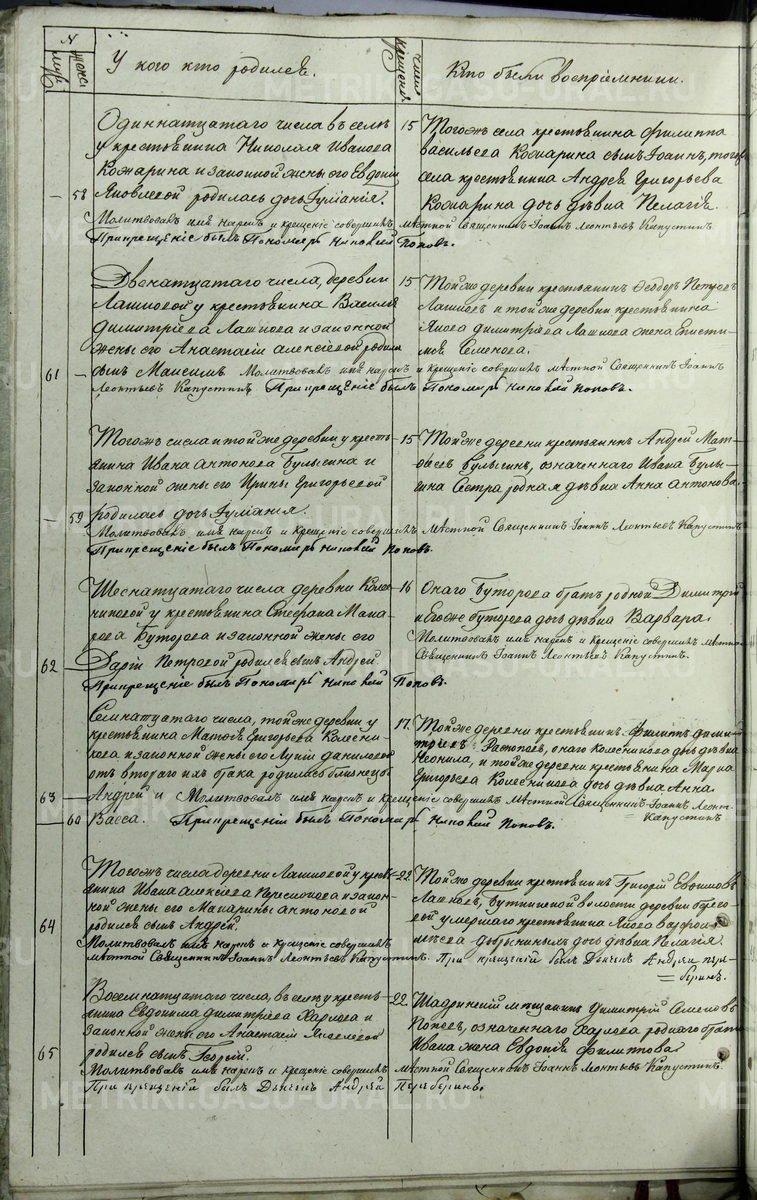 N
муж женс
У кого кто родился.
число крещенія
Кто были воспріемники.
Одиннатцатаго числа въ селѣ
у крестьянина Николая Иванова
Кокарина и законной жены его Евдокіи
58 Яковлевой родилась дочь Іуліанія.
Молитвовалъ имя нарекъ и крещеніе совершилъ мѣстной Священникъ Іоаннъ Леонтьевъ Капустинъ
При крещеніе былъ Пономарь Поповъ.
15 Тогожъ села крестьянина Филиппа
Васильева Кокарина сынъ Іоаннъ, того же
села крестьянина Андрея Григорьева
Кокарина дочь дѣвка Пелагія.
Двенатцатаго числа, деревни
у крестьянина Василья
Димитріева и законной
жены его Анастасіи Алексѣевой родился
61 сынъ Максимъ Молитвовалъ имя нарекъ и крещеніе совершилъ мѣстной Священникъ Іоаннъ
Леонтьевъ Капустинъ При крещеніе былъ Пономарь Поповъ.
15 Тойже деревни крестьянинъ Ѳеодоръ Петровъ
и тойже деревни крестьянина
Якова Димитріева жена Еписти-
мія Семенова.
Тогожъ числа и тойже деревни у кресть-
янина Ивана Антонова Булыгина и
законной жены его Ирины Григорьевой
59 родилась дочь Іуліанія.
Молитвовалъ имя нарекъ и крещеніе совершилъ мѣстной Священникъ Іоаннъ Леонтьевъ Капустинъ
При крещеніе былъ Пономарь Поповъ.
15 Тойже деревни крестьянинъ Андрей Мат-
вѣевъ Булыгинъ, означеннаго Ивана Булы-
гина сестра родная дѣвка Анна Антонова.
Шеснатцатаго числа деревни Колес-
никовой у крестьянина Стефана Мака-
рова Буторова и законной жены его
62 Даріи Петровой родился сынъ Андрей
При крещеніе былъ Пономарь Поповъ.
16 Онаго Буторова братъ родной Димитрій
и егоже Буторова дочь дѣвка Варвара.
Молитвовалъ имя нарекъ и крещеніе совершилъ мѣстной
Священникъ Іоаннъ Леонтьевъ Капустинъ.
Семнатцатаго числа, тойже деревни у
крестьянина Матвѣя Григорьева Колесни-
кова и законной жены его Лукіи Даниловой
отъ втораго ихъ брака родились близнецы
63 Андрей и Молитвовалъ имя нарекъ и крещеніе совершилъ мѣстной Священникъ Іоаннъ Леонт.
60 Васса. При крещеніи былъ Пономарь Поповъ. Капустинъ
17. Тойже деревни крестьянинъ Филипъ Дими-
тріевъ онаго Колесникова дочь дѣвка
Неонила, и тойже деревни крестьянина Марка
Григорьева Колесникова дочь дѣвка Анна.
Тогожъ числа деревни у кресть-
янина Ивана Алексѣева и закон-
ной жены его Макарины Антоновой
64 родился сынъ Андрей.
Молитвовалъ имя нарекъ и крещеніе совершилъ
мѣстной Священникъ Іоаннъ Леонтьевъ Капустинъ. При крещеніи былъ Дьячекъ Андрей Пуя-
беринъ.
22 Тойже деревни крестьянинъ Григорій Евфимовъ
волости деревни
умершаго крестьянина Якова
дочь дѣвка Пелагія.
Восемнатцатаго числа, въ селѣ у кресть-
янина Евдокима Димитріева Харлова и
законной жены его Анастасіи Яковлевой
65 родился сынъ Георгій.
Молитвовалъ имя нарекъ и крещеніе совершилъ мѣстной Священникъ Іоаннъ Леонтьевъ Капустинъ.
При крещеніи былъ Дьячекъ Андрей
22. Шадринскій мѣщанинъ Димитрій Семеновъ
Поповъ, означеннаго Харлова роднаго брата
Ивана жена Евдокія Филиппова